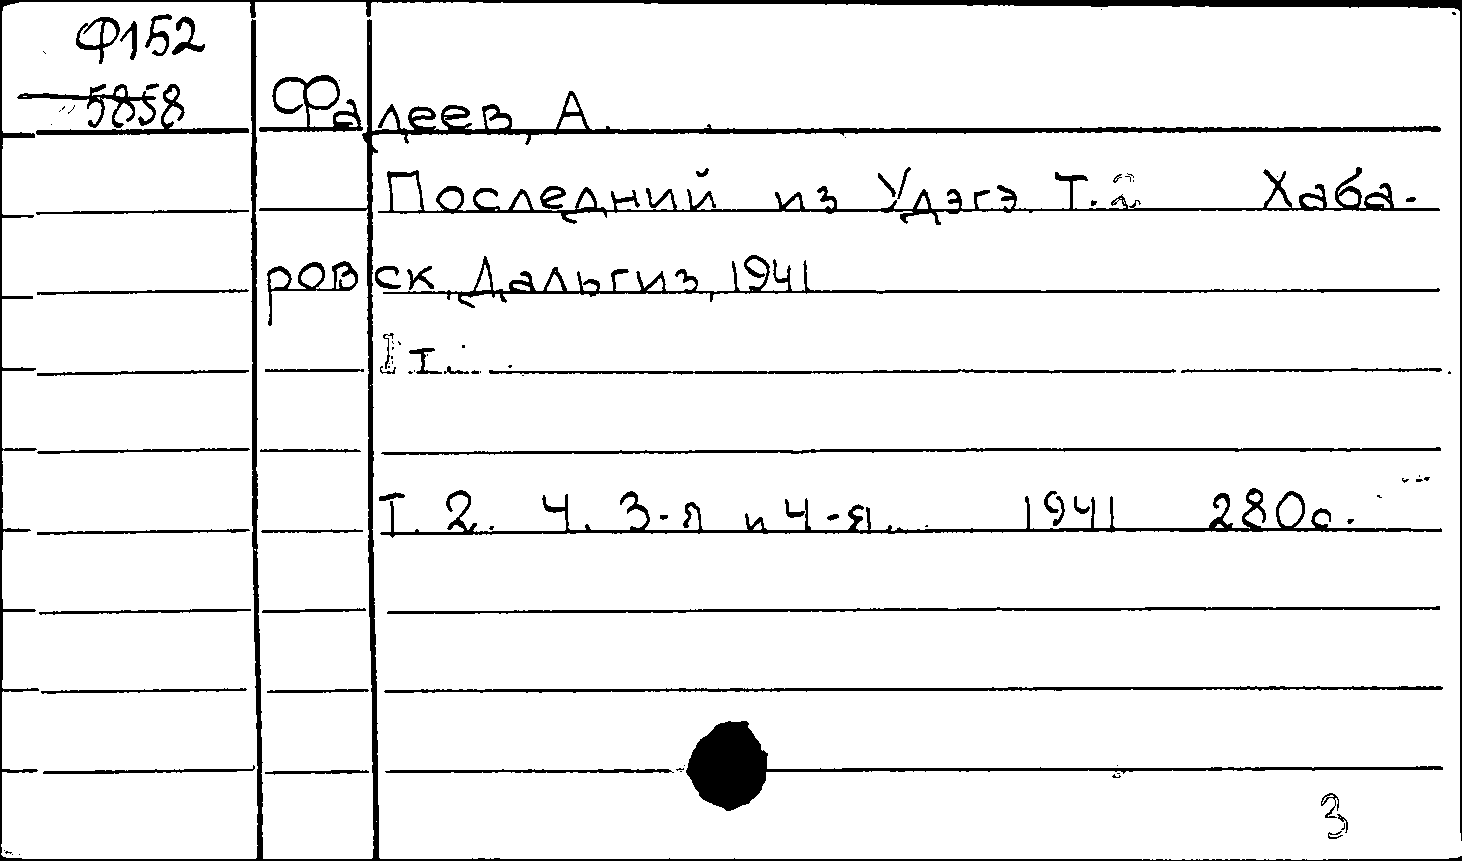 Ф152
5858
Фадеев, А.
Последний из Удэгэ Т. 2 Хаба-
ровск, Дальгиз, 1941
Т. 2. Ч. 3-я и 4-я. 1941 280с.
3